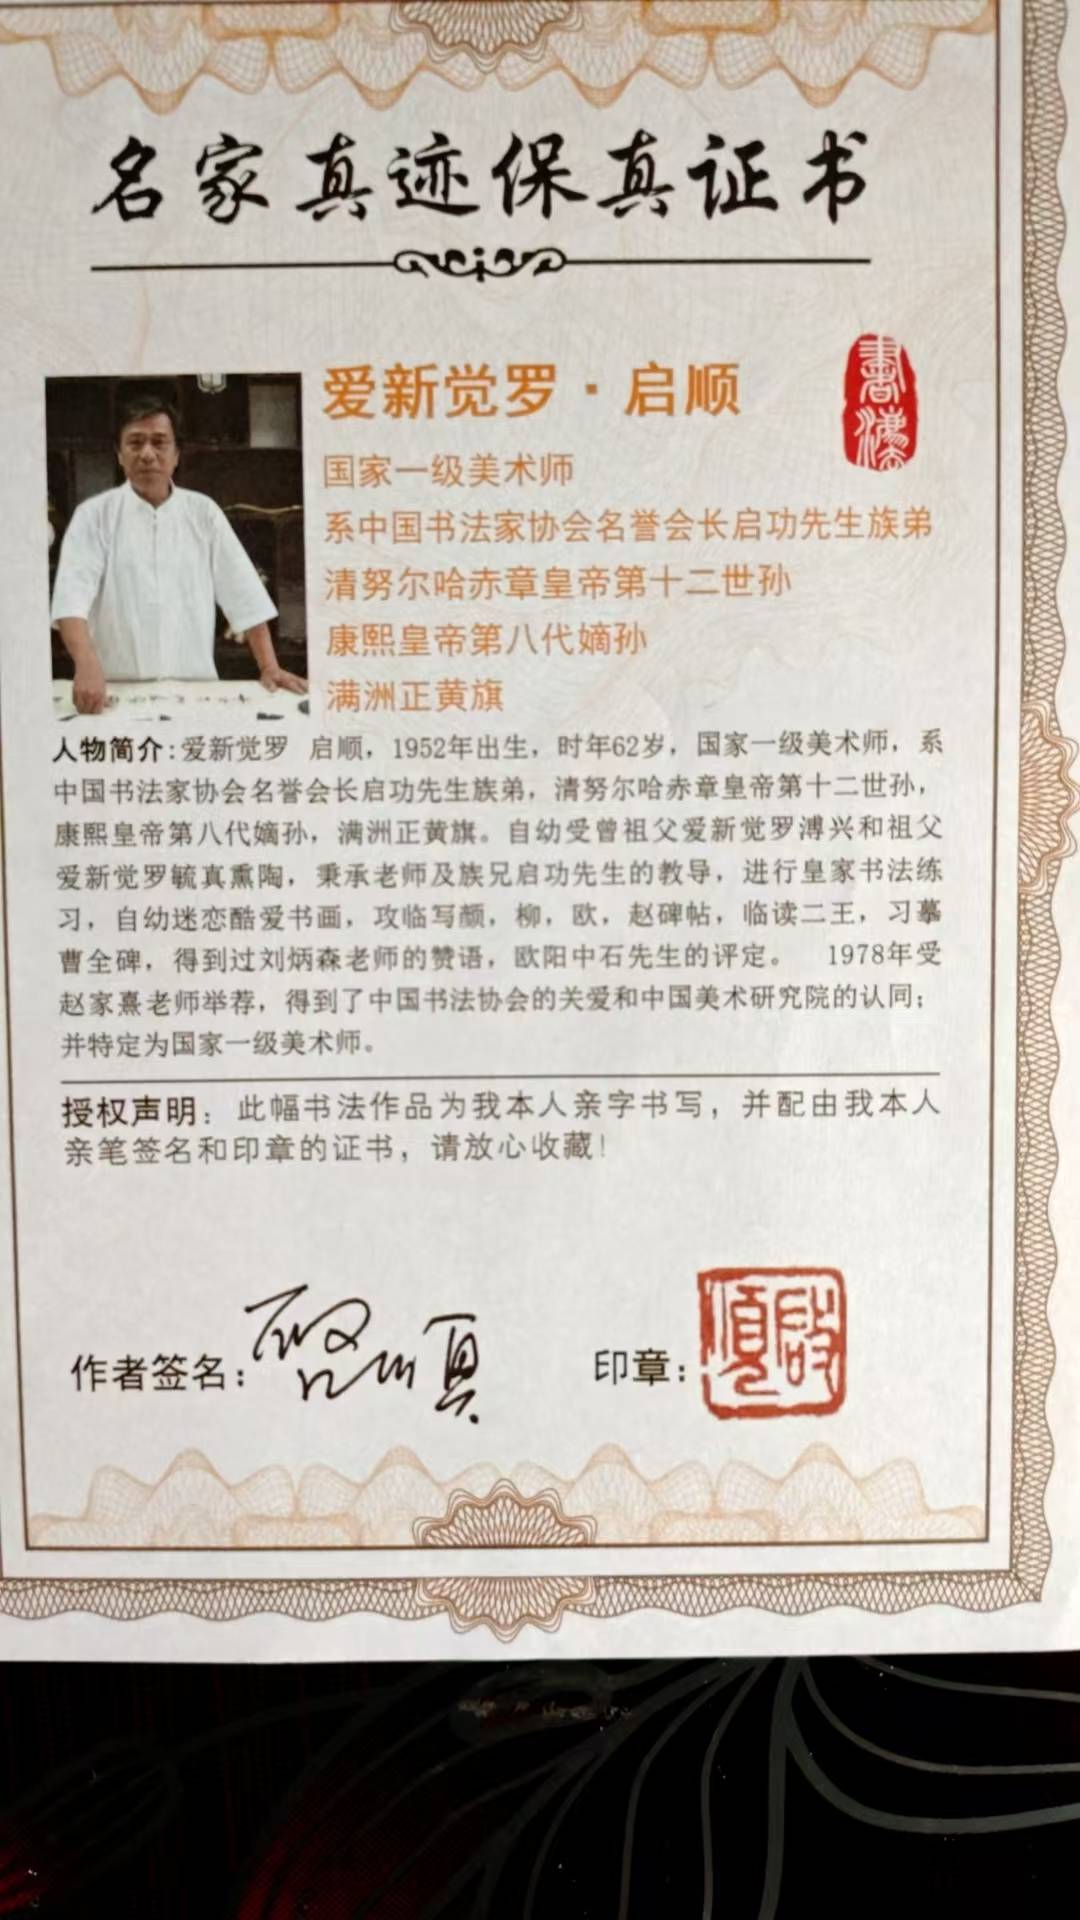 名家真迹保真证书
爱新觉罗·启顺
書法
国家一级美术师
系中国书法家协会名誉会长启功先生族弟
清努尔哈赤章皇帝第十二世孙
康熙皇帝第八代嫡孙
满洲正黄旗
人物简介:爱新觉罗 启顺，1952年出生，时年62岁，国家一级美术师，系
中国书法家协会名誉会长启功先生族弟，清努尔哈赤章皇帝第十二世孙，
康熙皇帝第八代嫡孙，满洲正黄旗。自幼受曾祖父爱新觉罗溥兴和祖父
爱新觉罗毓真熏陶，秉承老师及族兄启功先生的教导，进行皇家书法练
习，自幼迷恋酷爱书画，攻临写颜，柳，欧，赵碑帖，临读二王，习摹
曹全碑，得到过刘炳森老师的赞语，欧阳中石先生的评定。 1978年受
赵家熹老师举荐，得到了中国书法协会的关爱和中国美术研究院的认同；
并特定为国家一级美术师。
授权声明：此幅书法作品为我本人亲字书写，并配由我本人
亲笔签名和印章的证书，请放心收藏！
作者签名：启顺
印章：啟順